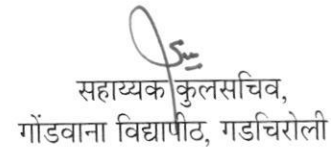 सहाय्यक कुलसचिव,
गोंडवाना विद्यापीठ, गडचिरोली